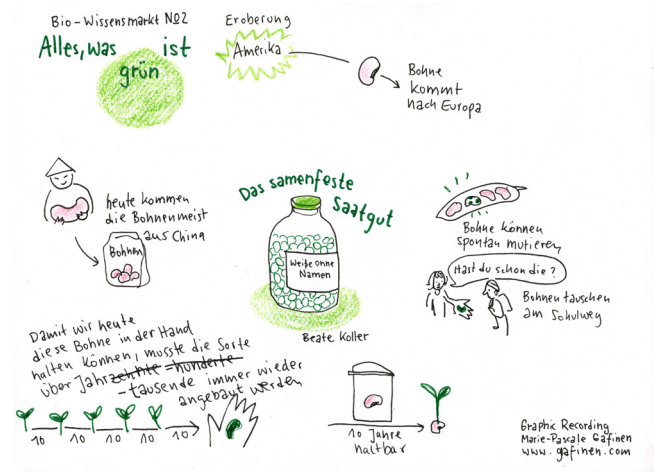 Bio-Wissensmarkt No2
Alles, was ist
grün
Eroberung
Amerika
Bohne
kommt
nach Europa
heute kommen
die Bohnen meist
aus China
Bohnen
Das samenfeste
Saatgut
Weiße ohne
Namen
Beate Koller
Bohne können
spontan mutieren
Hast du schon die?
Bohnen tauschen
am Schulweg
Damit wir heute
diese Bohne in der Hand
halten können, musste die Sorte
über Jahrzehnte - hunderte
- tausende immer wieder
angebaut werden
10 10 10 10 10
10 Jahre
haltbar
Graphic Recording
Marie-Pascale Gafinen
www.gafinen.com